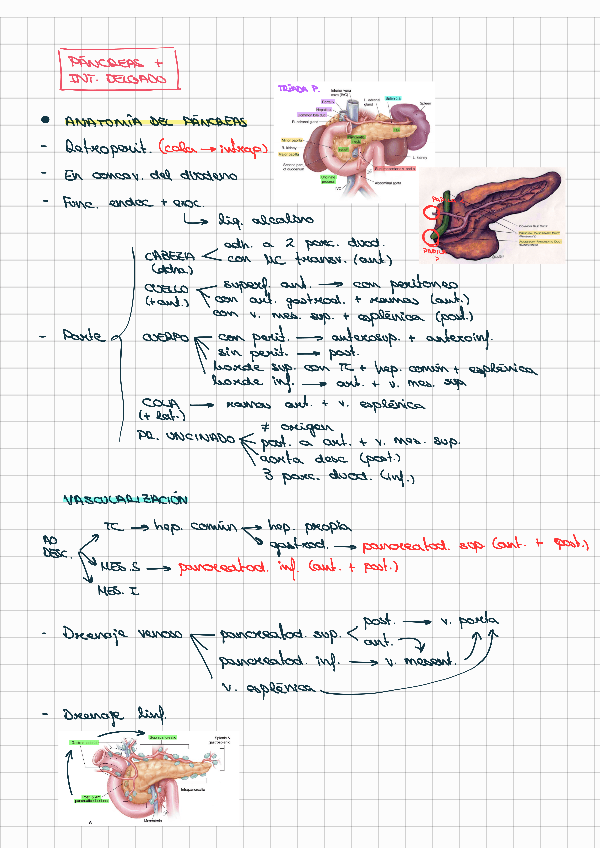 PÁNCREAS +
INT. DELGADO
TRÍADA P.
• ANATOMÍA DEL PÁNCREAS
- Retroperit. (cola → intrap)
- En concav. del duodeno
- Func. endoc + exoc.
↳ liq. alcalino
- Parte
CABEZA
(dcha)
adh. a 2 porc. duod.
con MC transv. (ant)
CUELLO
(+ ant.)
superf. ant. → con peritoneo
con art. gastrod. + ramas (ant.)
con v. mes. sup. + esplénica (post.)
CUERPO
con perit. → anterosup. + anteroinf.
sin perit. → post.
borde sup. con TC + hep. común + esplénica
borde inf. → art. + v. mes. sup
COLA → ramas art. + v. esplénica
(+ lat.)
PR. UNCINADO
≠ origen
post. a art. + v. mes. sup.
aorta desc (post.)
3 porc. duod. (inf.)
VASCULARIZACIÓN
AO
DESC.
TC → hep. común → hep. propia
gastrod. → pancreatod. sup. (ant. + post.)
MES. S → pancreatod. inf. (ant. + post.)
MES. I
- Drenaje venoso
pancreatod. sup.
post. → v. porta
ant.
pancreatod. inf. → v. mesent.
v. esplénica
- Drenaje linf.